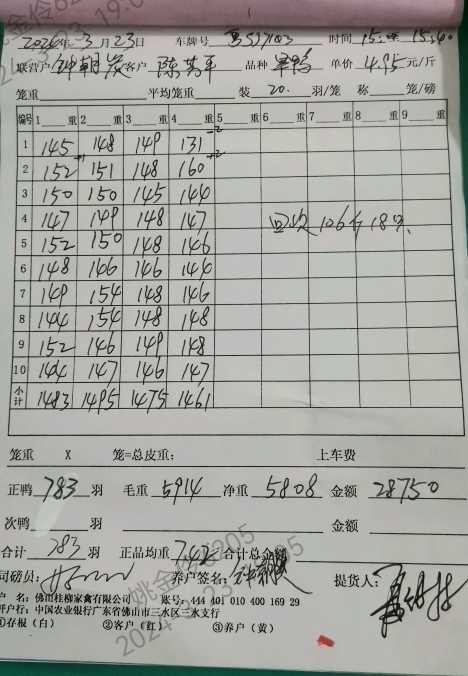 2024年3月23日 车牌号 粤S97103 时间 15:00 15:40
联营户 钟朝发 客户 陈芬平 品种 单价 4.95 元/斤
笼重 平均笼重 装 20. 羽/笼 称 笼/磅
编号 1 重 2 重 3 重 4 重 5 重 6 重 7 重 8 重 9 重
1 145 148 149 131 -2
2 152 +1 151 148 160 +2
3 150 150 145 144
4 147 149 148 147 回收106斤18只
5 152 150 148 146
6 148 146 146 144
7 149 154 148 146
8 144 154 148 148
9 152 146 149 148
10 144 147 146 147
小计 1483 1495 1475 1461
笼重 X 笼=总皮重: 上车费
正鸭 783 羽 毛重 5914 净重 5808 金额 28750
次鸭 羽 金额
合计 783 羽 正品均重 7.42 合计总金额
司磅员: 养户签名: 提货人:
户 名: 佛山桂柳家禽有限公司 账号: 444 401 010 400 169 29
开户行: 中国农业银行广东省佛山市三水区三水支行
①存根(白) ②客户(红) ③养户(黄)